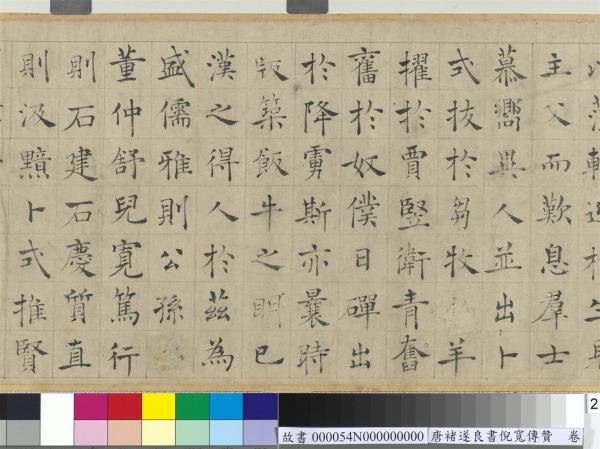 主父而歎息羣士
慕嚮異人並出卜
式拔於芻牧弘羊
擢於賈豎衛青奮
奮於奴僕日磾出
於降虜斯亦曩時
版築飯牛之明已
漢之得人於茲為
盛儒雅則公孫弘
董仲舒兒寬篤行
則石建石慶質直
則汲黯卜式推賢
故書 000054N000000000 唐褚遂良書倪寬傳贊 卷
2